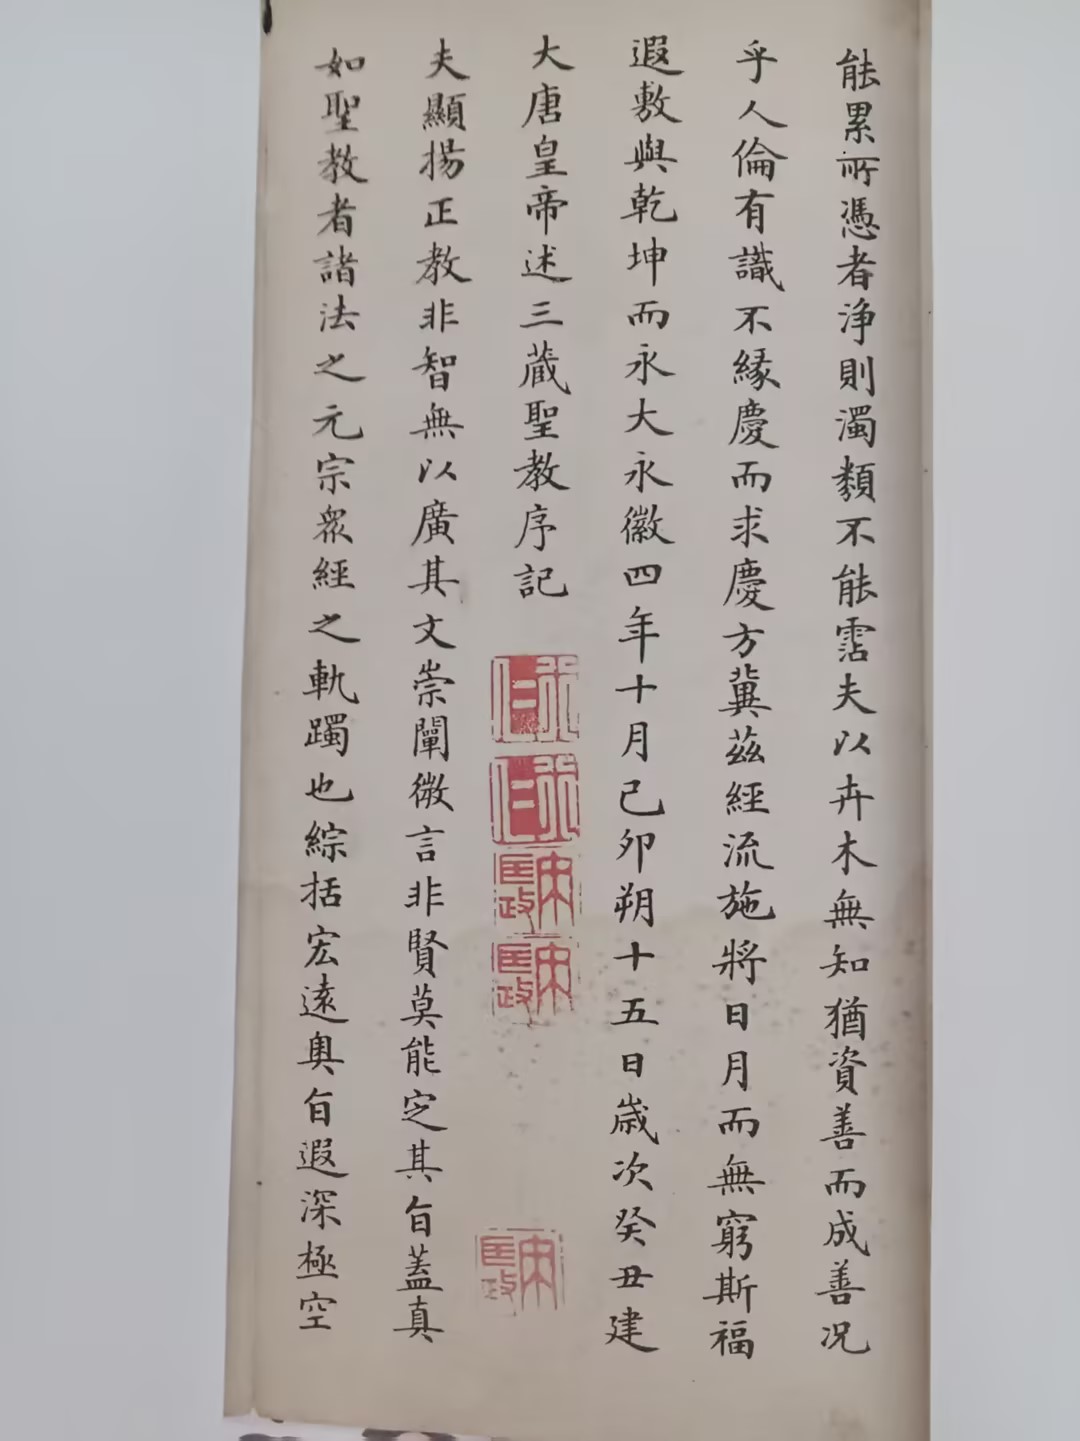 能累所憑者浄則濁類不能霑夫以卉木無知猶資善而成善况
乎人倫有識不緣慶而求慶方冀茲經流施將日月而無窮斯福
遐敷與乾坤而永大永徽四年十月己卯朔十五日歲次癸丑建
大唐皇帝述三藏聖教序記
夫顯揚正教非智無以廣其文崇闡微言非賢莫能定其旨蓋真
如聖教者諸法之元宗衆經之軌躅也綜括宏遠奥旨遐深極空